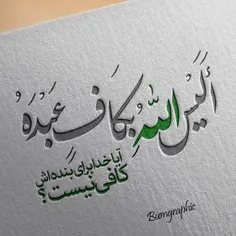 أَلَيْسَ اللهُ بِكَافٍ عَبْدَهُ
آیا خدا برای بنده‌اش
کافی نیست؟
Bumgraphic